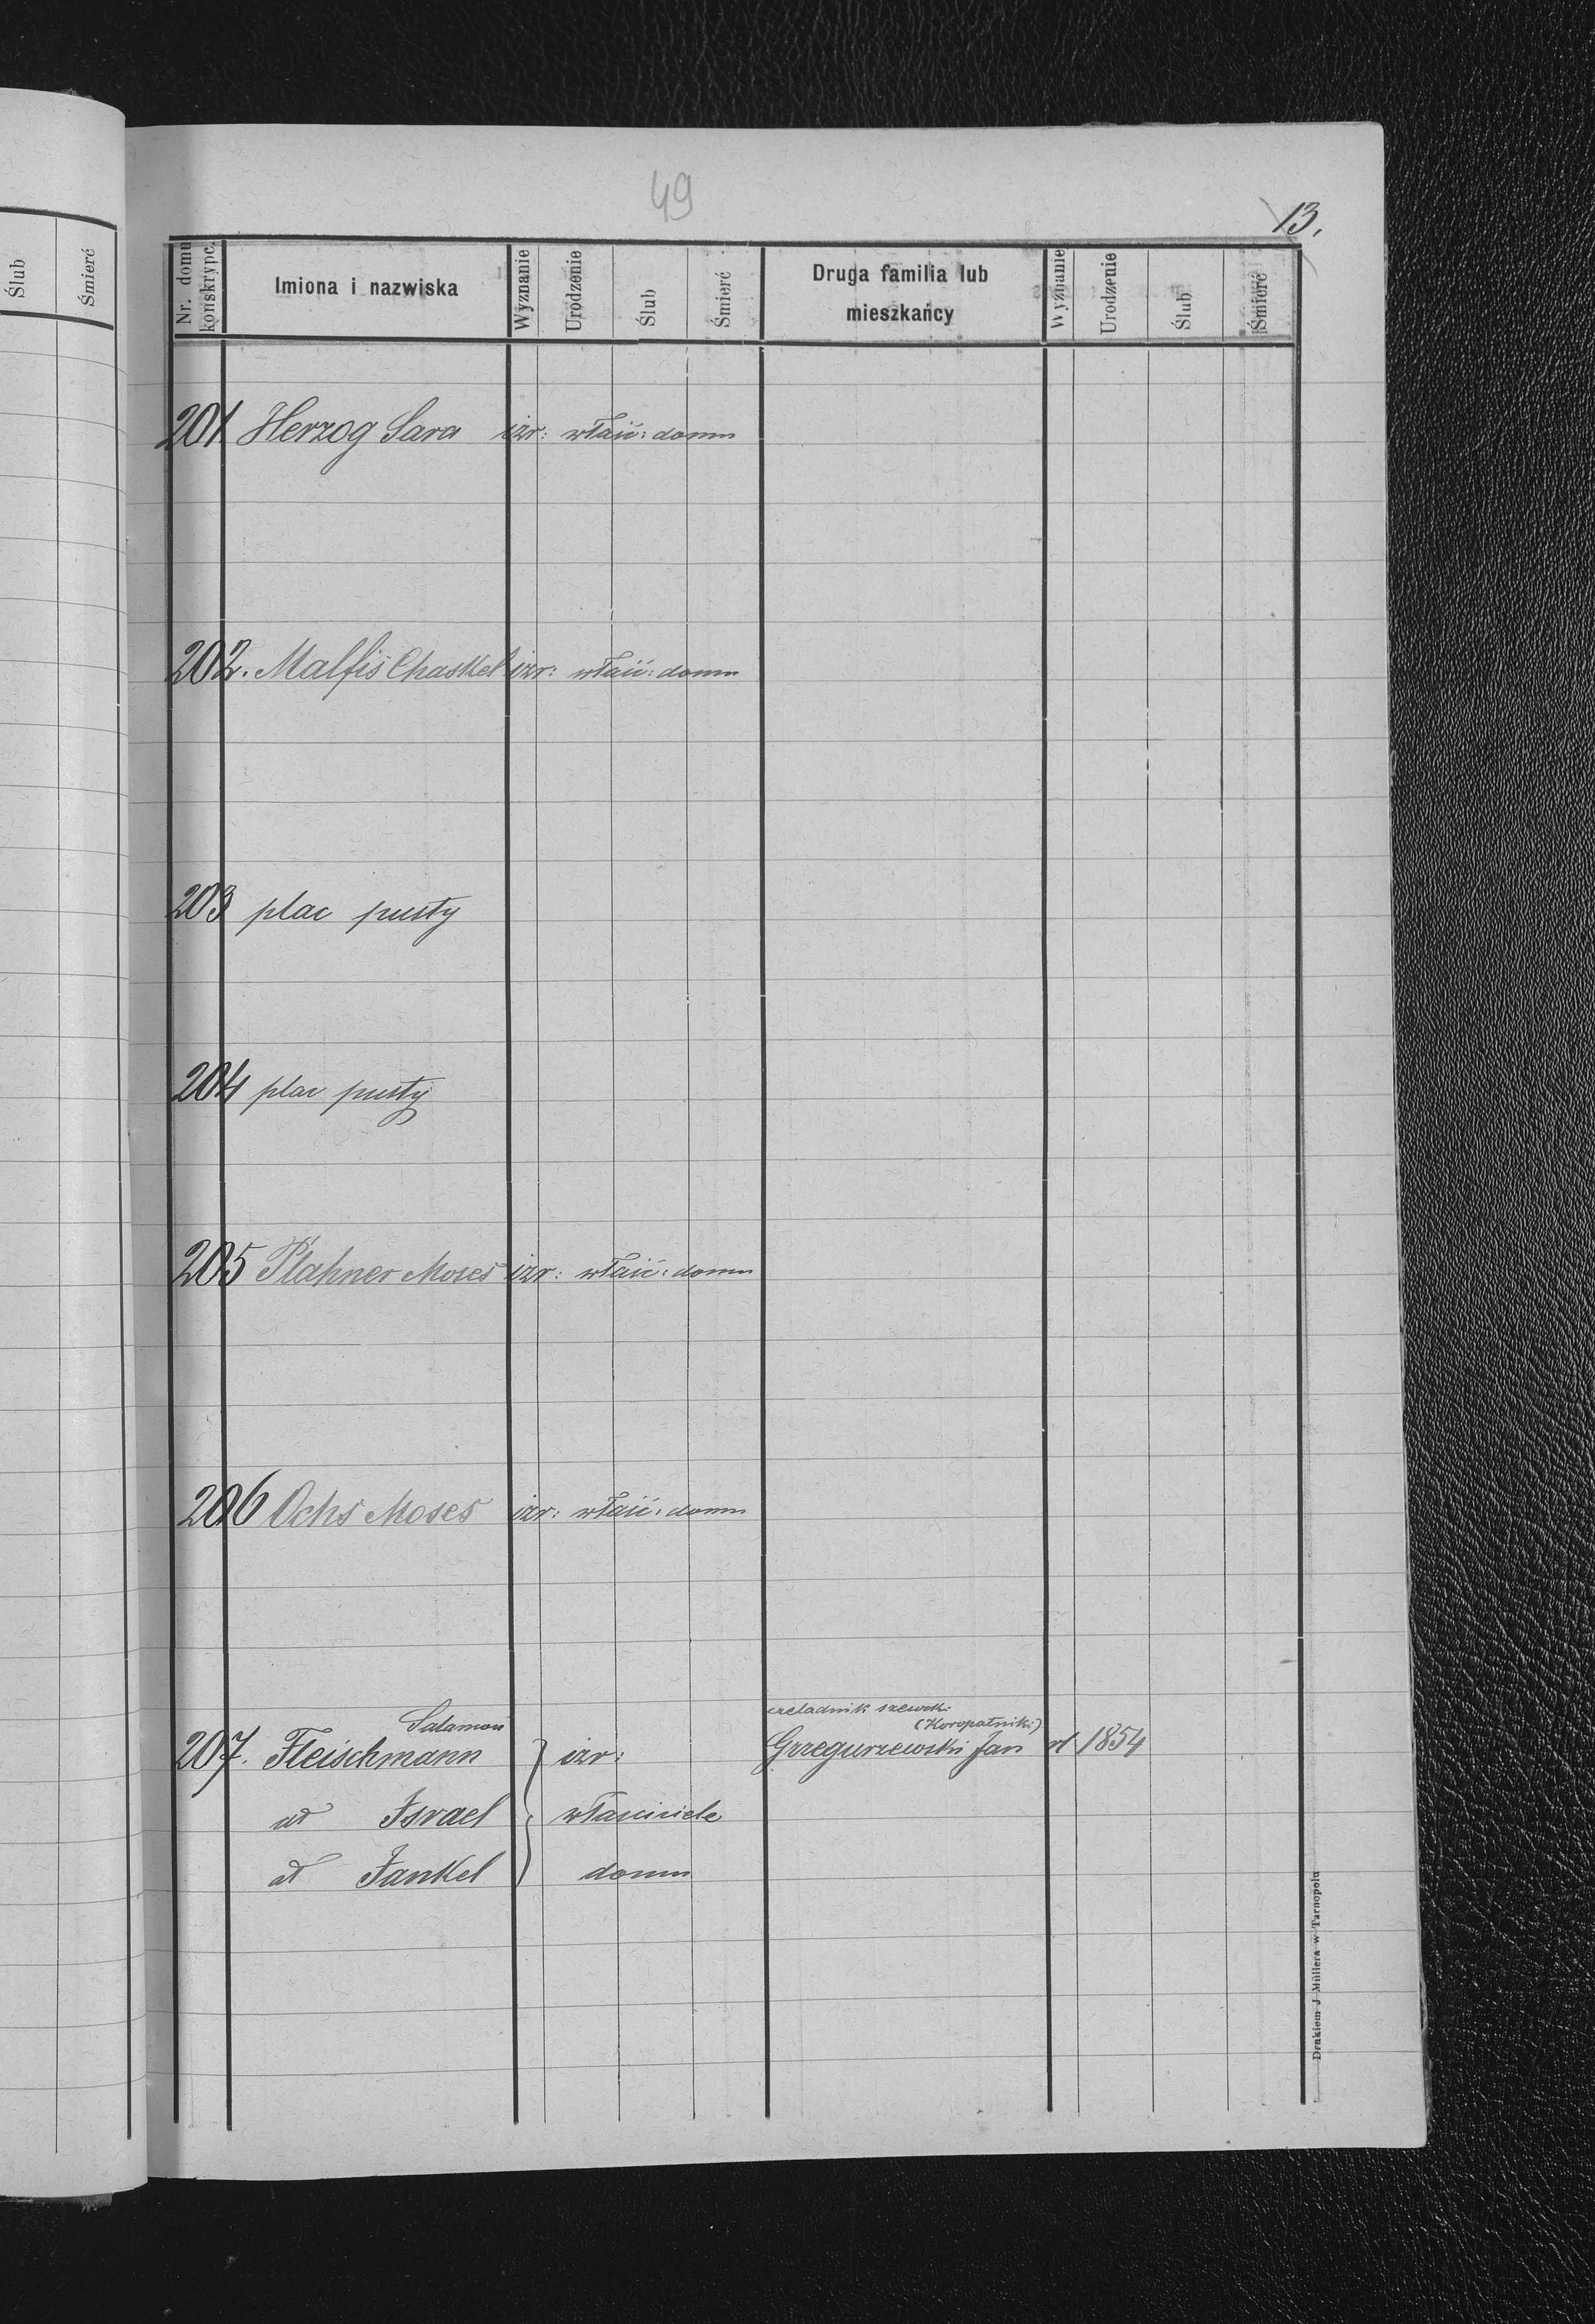 Ślub
Śmierć
49
13.
Nr. domu konskrypc.
Imiona i nazwiska
Wyznanie
Urodzenie
Ślub
Śmierć
Druga familia lub
mieszkańcy
Wyznanie
Urodzenie
Ślub
Śmierć
201 Herzog Sara izr: właśc: domu
202. Malfis Chaskel izr: właśc: domu
203 plac pusty
204 plac pusty
205 Plahner Moses izr: właśc: domu
206 Ochs Moses izr: właśc: domu
Salamon
czeladnik szewski
(Koropatniki)
207. Fleischmann } izr: Grzegurzewski Jan rl 1854
Israel właściciele
Jankel domu
Drukiem J Müllera w Tarnopolu